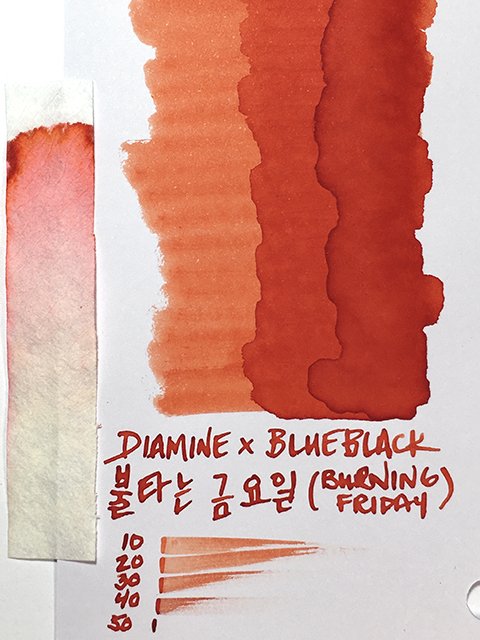 DIAMINE x BLUEBLACK
불타는 금요일 (BURNING FRIDAY)
10
20
30
40
50